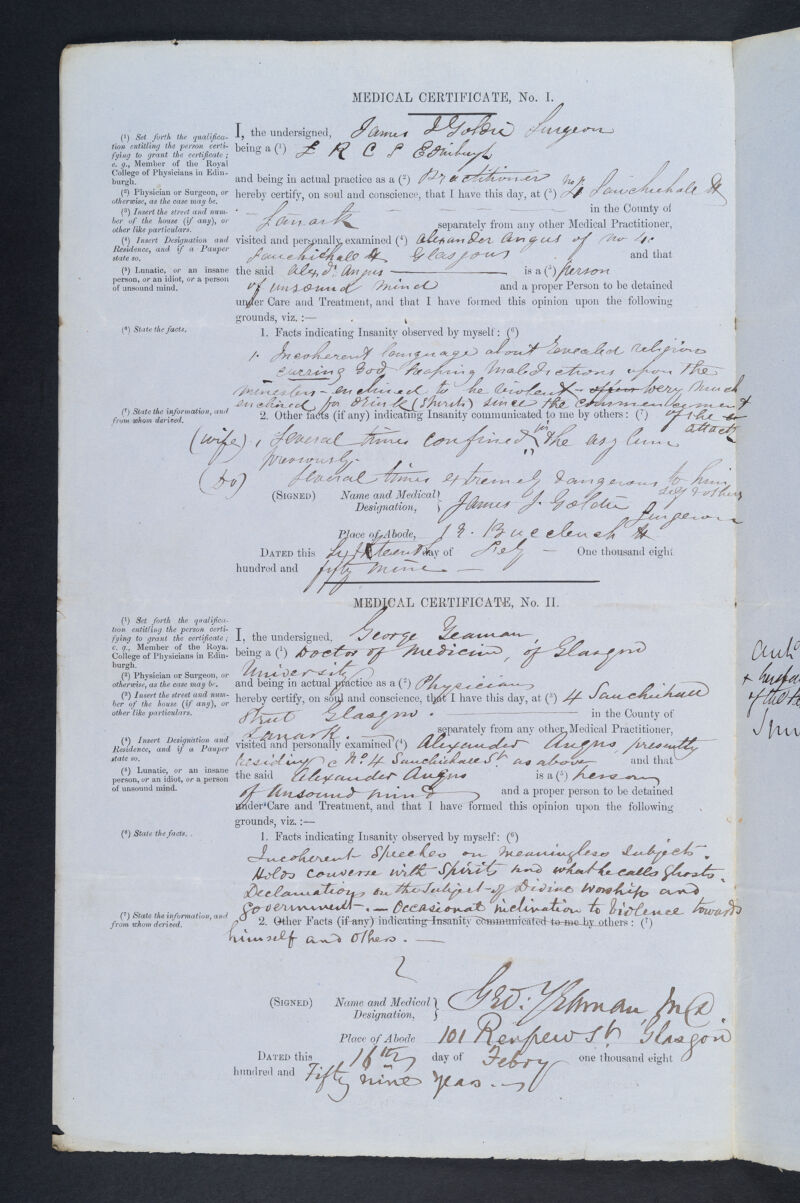 MEDICAL CERTIFICATE, No. I.
(¹) Set forth the qualifica-
tion entitling the person certi-
fying to grant the certificate;
e. g., Member of the Royal
College of Physicians in Edin-
burgh.
(²) Physician or Surgeon, or
otherwise, as the case may be.
(³) Insert the street and num-
ber of the house (if any), or
other like particulars.
(⁴) Insert Designation and
Residence, and if a Pauper
state so.
(⁵) Lunatic, or an insane
person, or an idiot, or a person
of unsound mind.
I, the undersigned, James J Goldie Surgeon
being a (¹) L R C S Edinburgh
and being in actual practice as a (²) Practitioner
hereby certify, on soul and conscience, that I have this day, at (³) No 4 Sauchiehall St
in the County of
Lanark separately from any other Medical Practitioner,
visited and personally examined (⁴) Alexander Angus of no 4.
Sauchiehall St Glasgow and that
the said Alexr. Angus is a (⁵) person
of unsound mind and a proper Person to be detained
under Care and Treatment, and that I have formed this opinion upon the following
grounds, viz. :—
(⁶) State the facts.
1. Facts indicating Insanity observed by myself: (⁶)
1. Incoherent language about revealed religion
cursing God heaping maledictions upon the
ministers - enclined to be violent - very much
enclined for drink (spirits) since the commencement
of the attack
(⁷) State the information, and
from whom derived.
2. Other facts (if any) indicating Insanity communicated to me by others: (⁷)
(wife) 1 Several times confined in the asylum
previously.
(Do) Several times extremely dangerous to him
self & others
(SIGNED) Name and Medical Designation, James J. Goldie
Surgeon
Place of Abode, 19. Buccleuch St
DATED this Sixteenth day of Feby — One thousand eight
hundred and fifty nine —
MEDICAL CERTIFICATE, No. II.
(¹) Set forth the qualifica-
tion entitling the person certi-
fying to grant the certificate;
e. g., Member of the Royal
College of Physicians in Edin-
burgh.
(²) Physician or Surgeon, or
otherwise, as the case may be.
(³) Insert the street and num-
ber of the house (if any), or
other like particulars.
(⁴) Insert Designation and
Residence, and if a Pauper
state so.
(⁵) Lunatic, or an insane
person, or an idiot, or a person
of unsound mind.
I, the undersigned, George Yeaman,
being a (¹) Doctor of Medicine, of Glasgow
University
and being in actual practice as a (²) Physician
hereby certify, on soul and conscience, that I have this day, at (³) 4 Sauchiehall
Street Glasgow. in the County of
Lanark. — separately from any other Medical Practitioner,
visited and personally examined (⁴) Alexander Angus, presently
residing @ No. 4 Sauchiehall St. as above and that
the said Alexander Angus is a (⁵) person
of unsound mind and a proper person to be detained
under Care and Treatment, and that I have formed this opinion upon the following
grounds, viz. :—
(⁶) State the facts.
1. Facts indicating Insanity observed by myself: (⁶)
Incoherent speeches on meaningless subjects.
Holds converse with Spirits and what he calls ghosts.
Declamations on the subject of Divine Worship and
government. — Occasional inclination to violence towards
(⁷) State the information, and
from whom derived.
2. Other Facts (if any) indicating Insanity communicated to me by others: (⁷)
himself and others. —
(SIGNED) Name and Medical Designation, Geo: Yeaman MD
Place of Abode 101 Renfrew St. Glasgow
DATED this 16th day of Febry one thousand eight
hundred and Fifty nine years. —